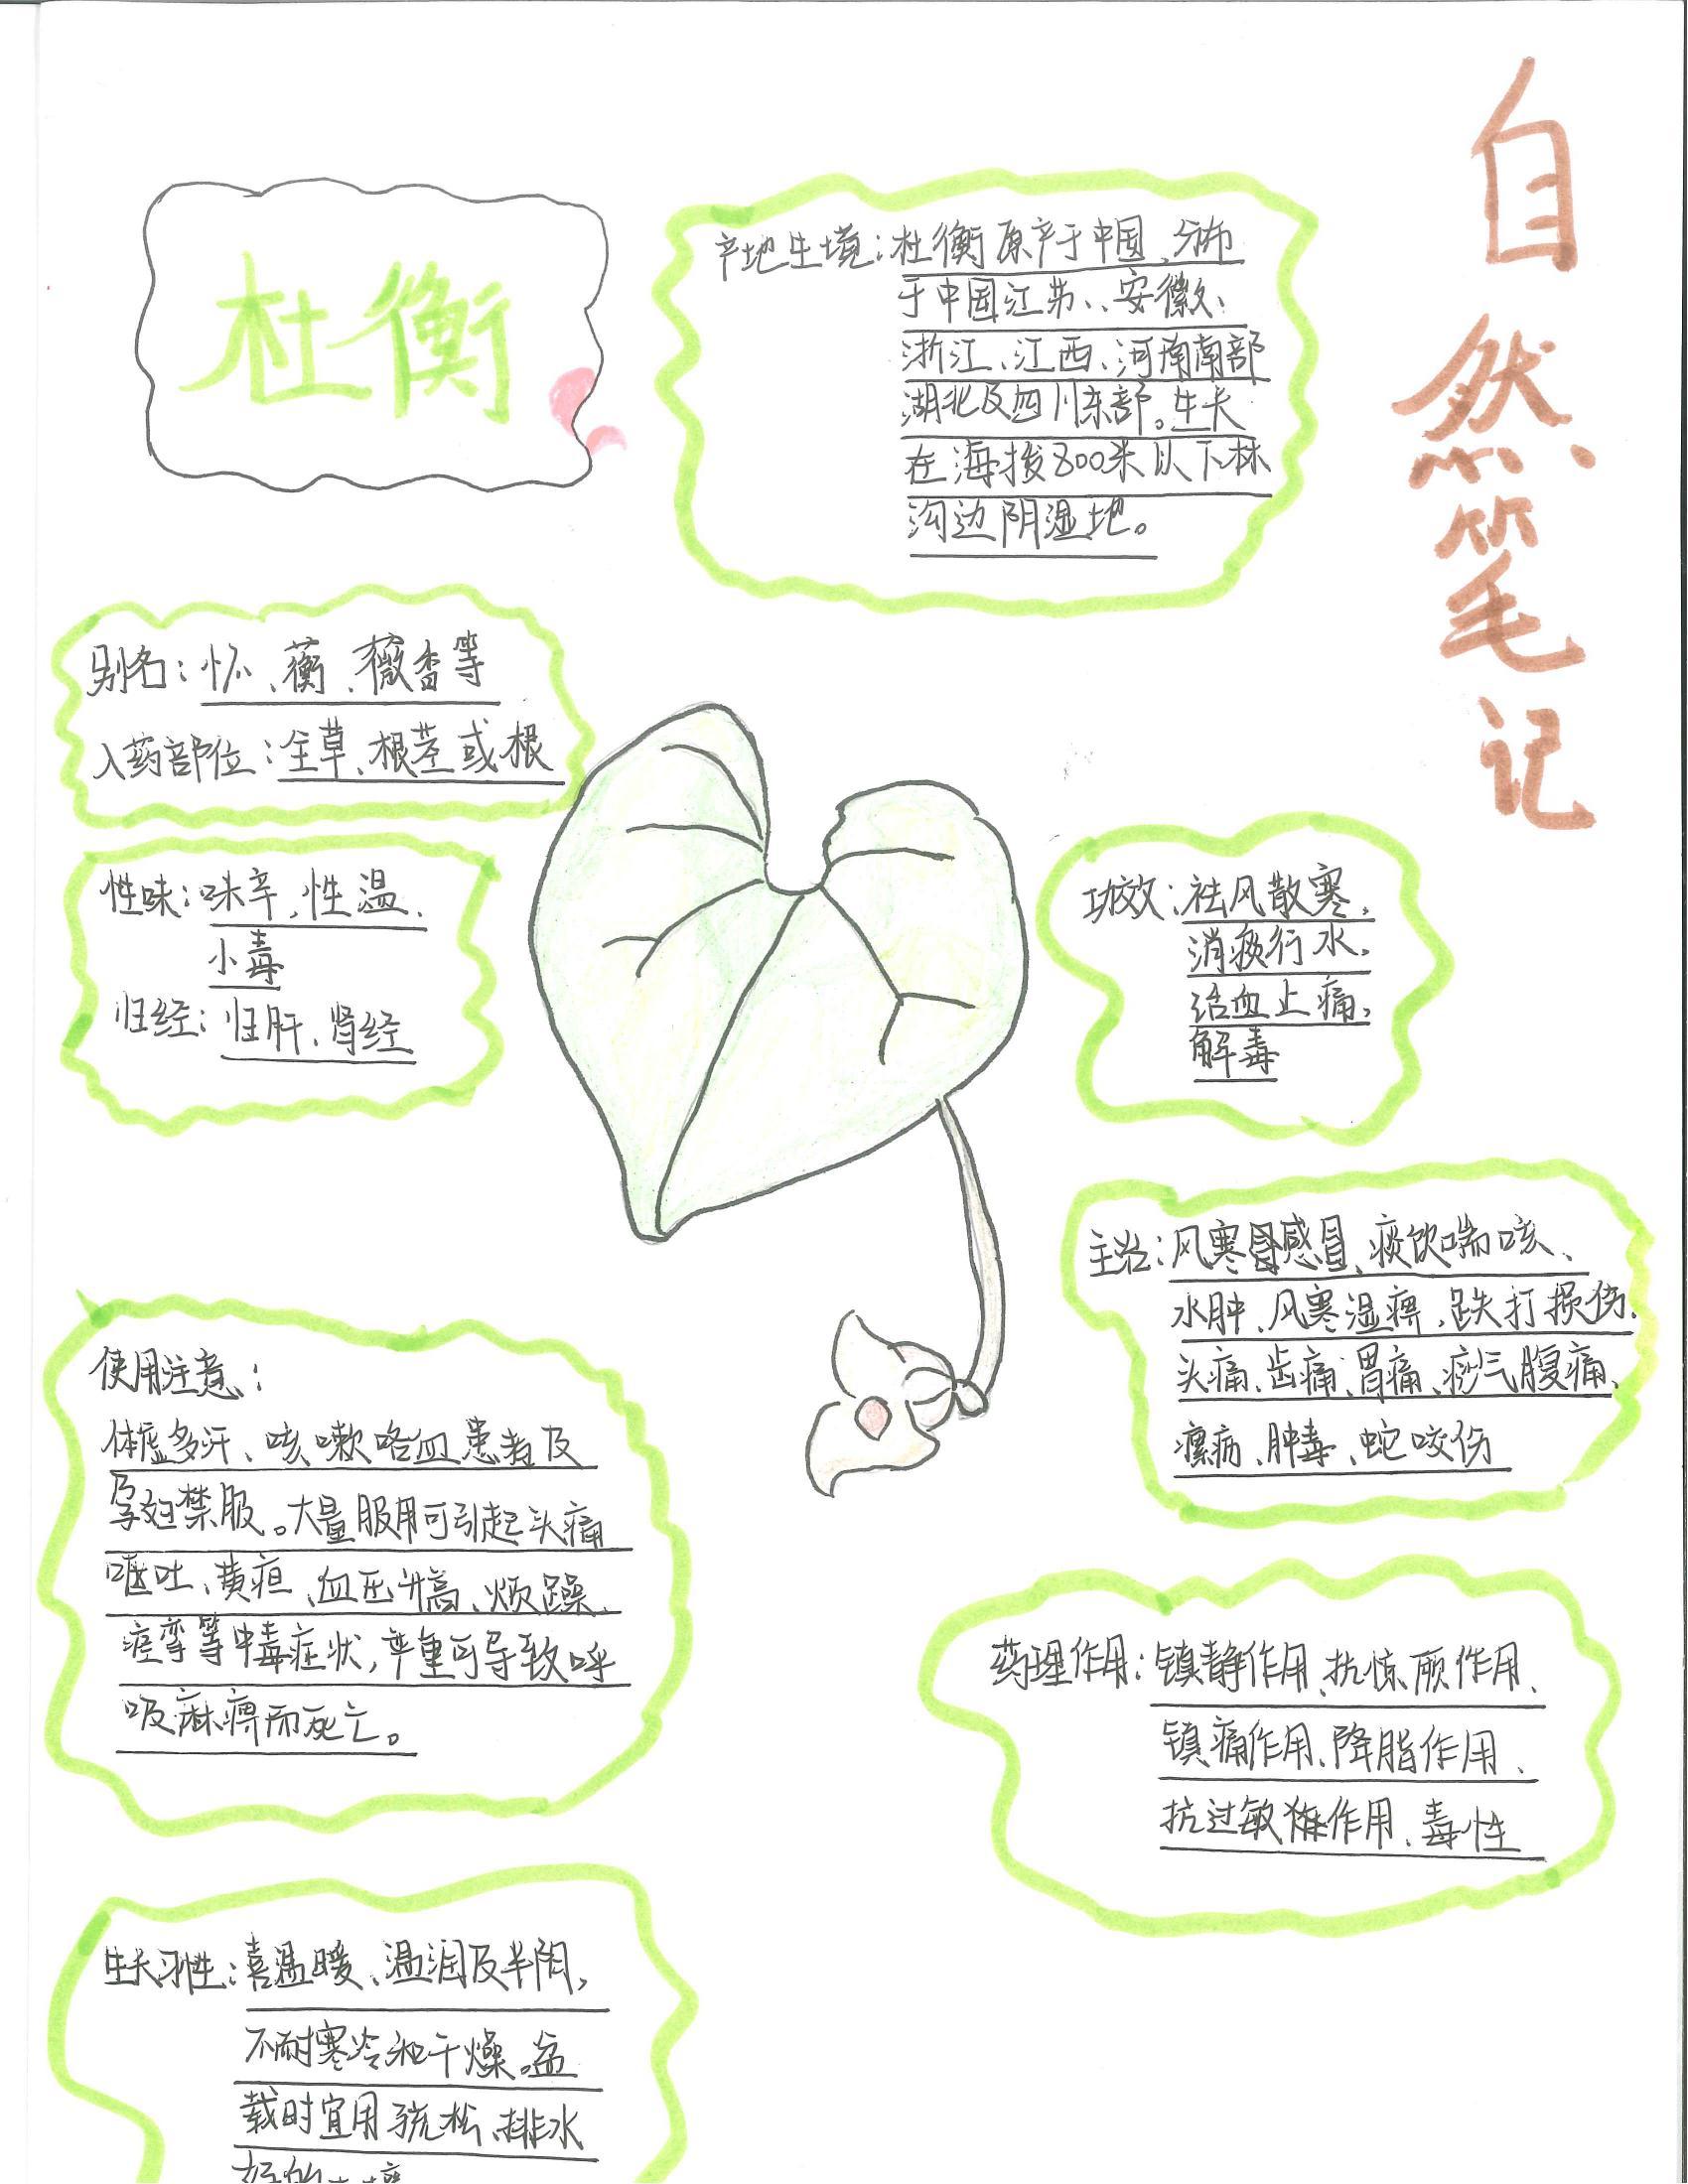 自然笔记
杜衡
产地生境：杜衡原产于中国、分布
于中国江苏、、安徽、
浙江、江西、河南南部
湖北及四川东部。生长
在海拔800米以下林
沟边阴湿地。
别名：怀、蘅、薇香等
入药部位：全草、根茎或根
性味：味辛，性温、
小毒
归经：归肝、肾经
功效：祛风散寒，
消痰行水，
活血止痛，
解毒
主治：风寒感冒、痰饮喘咳、
水肿、风寒湿痹，跌打损伤、
头痛、齿痛、胃痛、痧气腹痛、
瘰疬、肿毒、蛇咬伤
使用注意：
体虚多汗、咳嗽咯血患者及
孕妇禁服。大量服用可引起头痛
呕吐、黄疸、血压升高、烦躁、
痉挛等中毒症状，严重可导致呼
吸麻痹而死亡。
药理作用：镇静作用、抗惊厥作用、
镇痛作用、降脂作用、
抗过敏作用、毒性
生长习性：喜温暖、温润及半阴，
不耐寒冷和干燥。盆
栽时宜用疏松、排水
好的